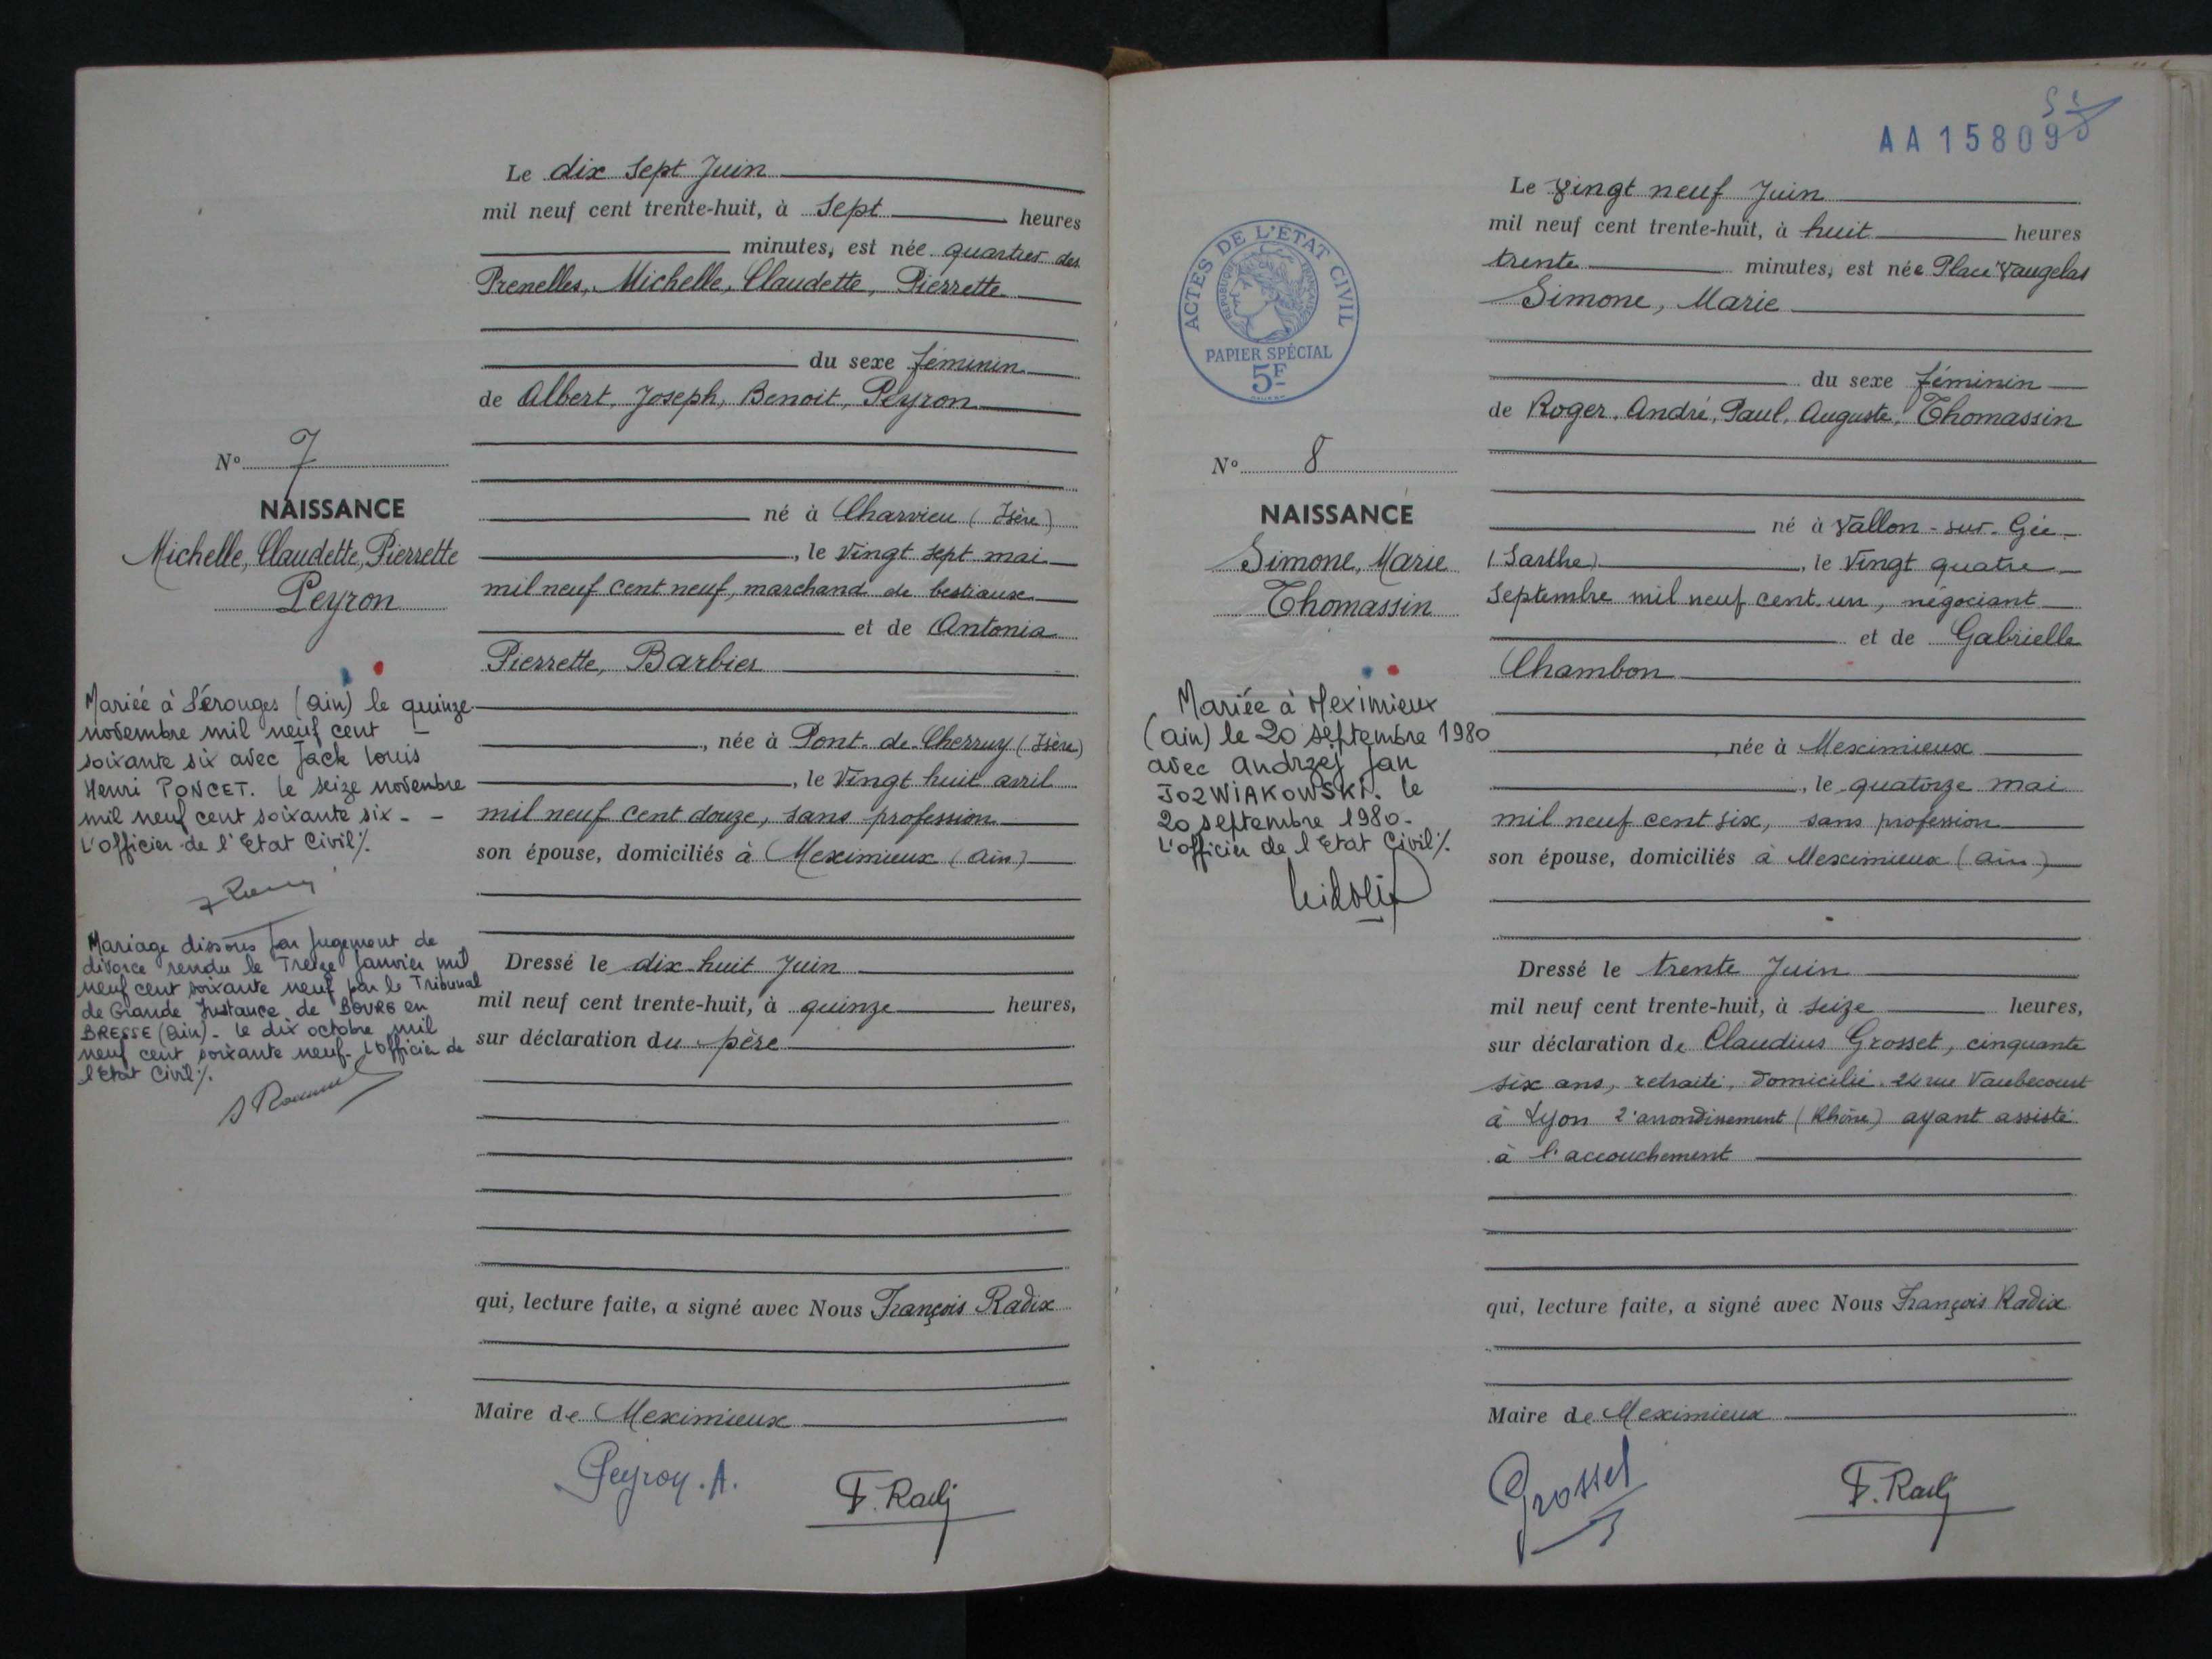 Le dix sept Juin
mil neuf cent trente-huit, à sept heures
minutes, est née quartier des
Prenelles, Michelle, Claudette, Pierrette
du sexe féminin
de Albert, Joseph, Benoit, Peyron
N° 7
NAISSANCE
Michelle, Claudette, Pierrette
Peyron
né à Charvieu (Isère)
, le vingt sept mai
mil neuf cent neuf, marchand de bestiaux
et de Antonia
Pierrette, Barbier
, née à Pont-de-Cherruy (Isère)
, le vingt huit avril
mil neuf cent douze, sans profession
son épouse, domiciliés à Meximieux (Ain)
Mariée à Pérouges (Ain) le quinze
novembre mil neuf cent
soixante six avec Jack Louis
Henri PONCET. Le seize novembre
mil neuf cent soixante six - -
L'officier de l'Etat Civil %.
Mariage dissous par jugement de
divorce rendu le Treize Janvier mil
neuf cent soixante neuf par le Tribunal
de Grande Instance de BOURG en
BRESSE (Ain) - le dix octobre mil
neuf cent soixante neuf - L'officier de
l'Etat Civil %.
Dressé le dix-huit Juin
mil neuf cent trente-huit, à quinze heures,
sur déclaration du père
qui, lecture faite, a signé avec Nous François Radix
Maire de Meximieux
Peyron. A.
F. Radix
AA 15809
ACTES DE L'ÉTAT CIVIL
RÉPUBLIQUE FRANÇAISE
PAPIER SPÉCIAL
5F
Le vingt neuf Juin
mil neuf cent trente-huit, à huit heures
trente minutes, est née Place Vaugelas
Simone, Marie
du sexe féminin
de Roger, André, Paul, Auguste, Thomassin
N° 8
NAISSANCE
Simone, Marie
Thomassin
né à Vallon-sur-Gée
(Sarthe), le vingt quatre
Septembre mil neuf cent un, négociant
et de Gabrielle
Chambon
, née à Meximieux
, le quatorze mai
mil neuf cent six, sans profession
son épouse, domiciliés à Meximieux (Ain)
Mariée à Meximieux
(Ain) le 20 septembre 1980
avec Andrzej Jan
JOZWIAKOWSKI. le
20 septembre 1980.
L'officier de l'Etat Civil %.
Dressé le trente Juin
mil neuf cent trente-huit, à seize heures,
sur déclaration de Claudius Grosset, cinquante
six ans, retraité, domicilié 24 rue Vaubecourt
à Lyon 2e arrondissement (Rhône) ayant assisté
à l'accouchement
qui, lecture faite, a signé avec Nous François Radix
Maire de Meximieux
Grosset
F. Radix